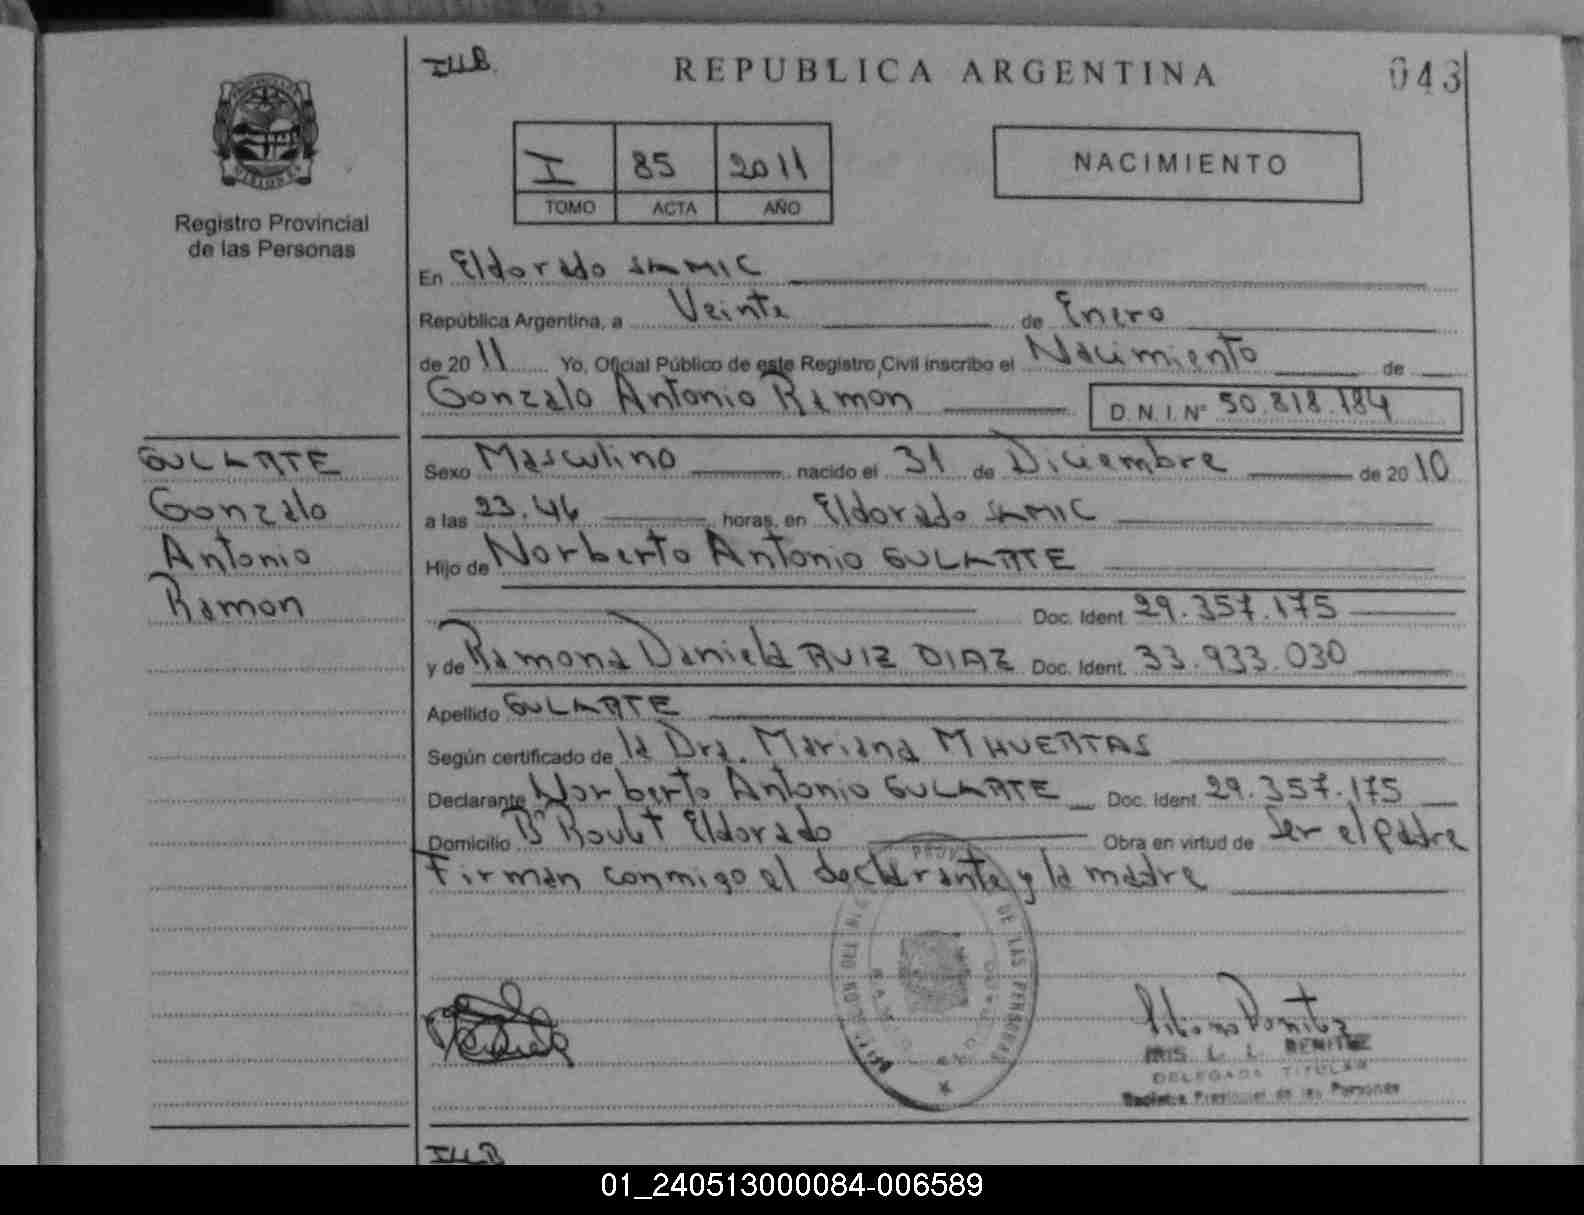 ILLB
REPUBLICA ARGENTINA
043
I 85 2011
TOMO ACTA AÑO
NACIMIENTO
Registro Provincial
de las Personas
En Eldorado SAMIC
República Argentina, a Veinte de Enero
de 2011 Yo, Oficial Público de este Registro Civil inscribo el Nacimiento de
Gonzalo Antonio Ramon D.N.I. Nº 50.818.184
GULARTE
Gonzalo
Antonio
Ramon
Sexo Masculino nacido el 31 de Diciembre de 2010
a las 23.46 horas, en Eldorado SAMIC
Hijo de Norberto Antonio GULARTE
Doc. Ident. 29.357.175
y de Ramona Daniela RUIZ DIAZ Doc. Ident. 33.933.030
Apellido GULARTE
Según certificado de la Dra. Mariana M HUERTAS
Declarante Norberto Antonio GULARTE Doc. Ident. 29.357.175
Domicilio Bº Eldorado Obra en virtud de Ser el padre
Firman conmigo el declarante y la madre
DE LAS PERSONAS
IRIS L. L. BENITEZ
DELEGADA TITULAR
Registro Provincial de las Personas
01_240513000084-006589